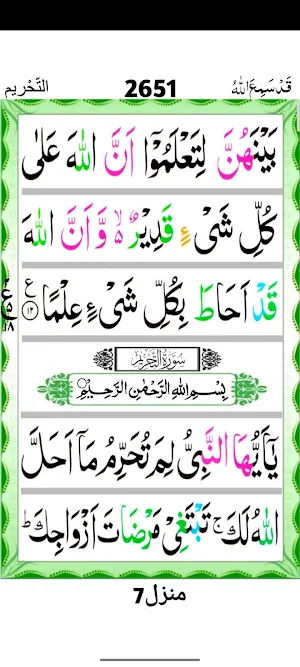 قَدْ سَمِعَ اللّٰهُ 2651 التَّحْرِيم
بَيْنَهُنَّ لِتَعْلَمُوْٓا اَنَّ اللّٰهَ عَلٰى
كُلِّ شَىْءٍ قَدِيْرٌ ۙ وَّ اَنَّ اللّٰهَ
قَدْ اَحَاطَ بِكُلِّ شَىْءٍ عِلْمًا ۝۱۲
سُوْرَةُ التَّحْرِيْمِ
بِسْمِ اللّٰهِ الرَّحْمٰنِ الرَّحِيْمِ
يٰۤاَيُّهَا النَّبِىُّ لِمَ تُحَرِّمُ مَاۤ اَحَلَّ
اللّٰهُ لَكَ ۚ تَبْتَغِىْ مَرْضَاتَ اَزْوَاجِكَ ؕ
منزل 7